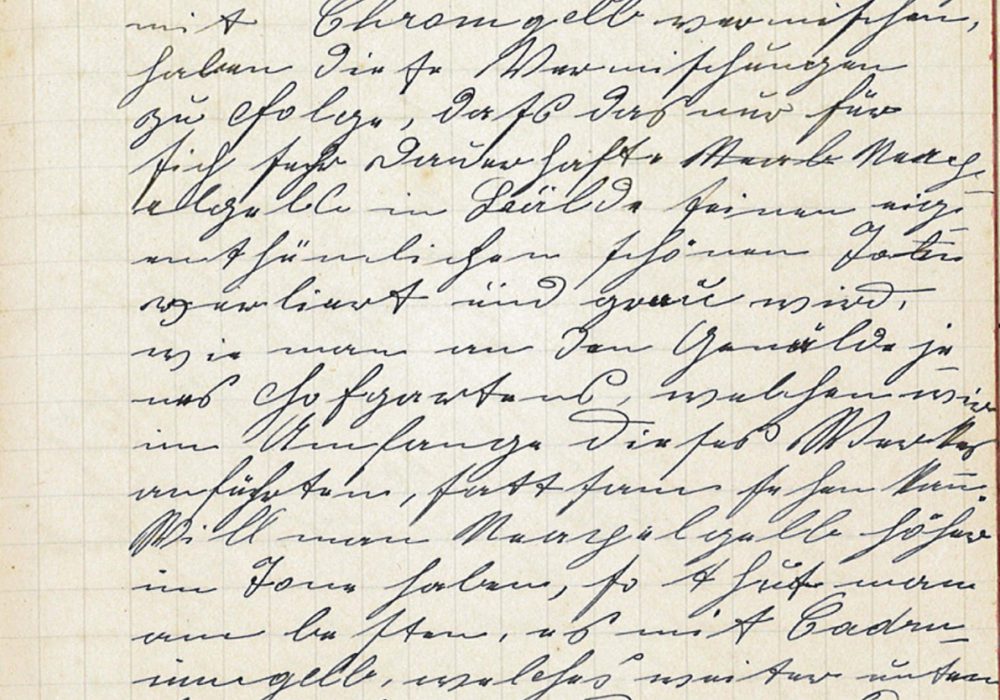 mit Chromgelb vermischen,
haben diese Vermischungen
zu Folge, daß das nur für
sich sehr dauerhafte
in Bälde seinen eig-
enthümlichen schönen Ton
verliert und grau wird,
wie man an den Gemälde je-
nes Hofgartens, welchen wir
im Umfange dieses Werkes
anführten, sattsam sehen kann.
Will man Neapelgelb höher
im Tone haben, so thut man
am besten, es mit Cadm-
iumgelb, welches weiter unten